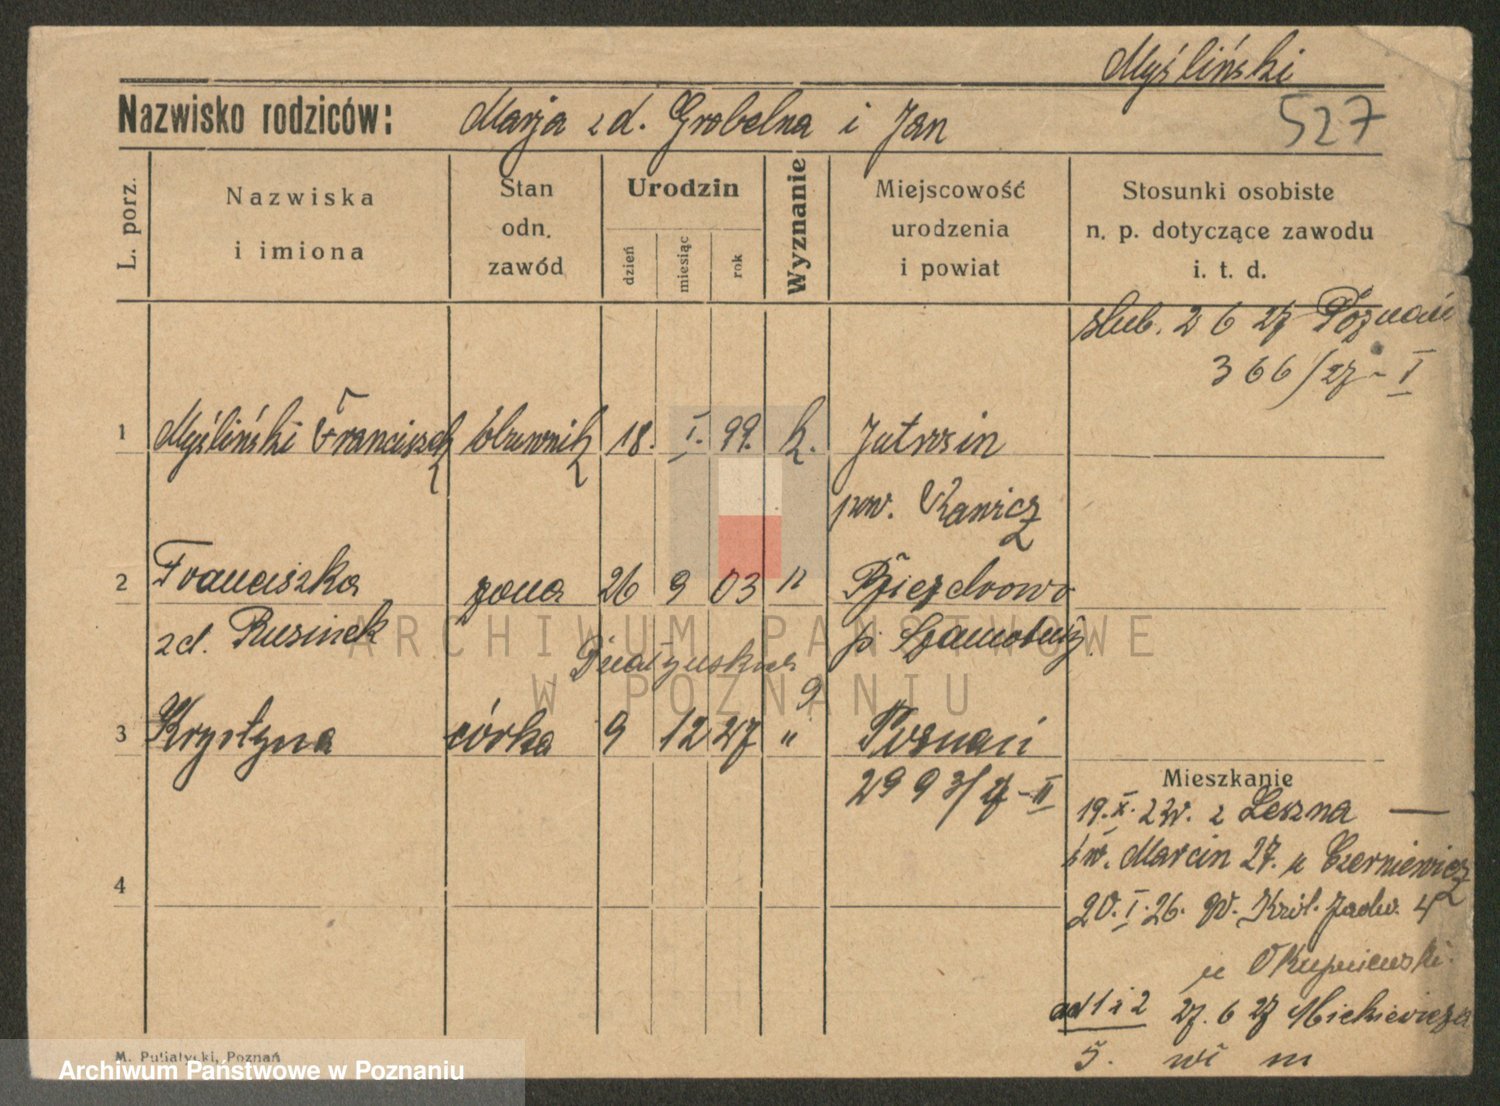 Myśliński
527
Nazwisko rodziców: Marja zd. Grobelna i Jan
L. porz.
Nazwiska i imiona
Stan odn. zawód
Urodzin
dzień
miesiąc
rok
Wyznanie
Miejscowość urodzenia i powiat
Stosunki osobiste n. p. dotyczące zawodu i. t. d.
ślub. 2 6 27 Poznań
366/27 - I
1 Myśliński Franciszek 18. I. 99. k. Jutrosin
pow. Rawicz
2 Franciszka żona 26 9 03 " 
zd. Rusinek p. Szamotuły
ARCHIWUM PAŃSTWOWE
W POZNANIU
3 Krystyna córka 9 12 27 " Poznań
2993/27 - II
Mieszkanie
19. X. 23r. z Leszna —
św. Marcin 27. u Czerniewicz
4
20. I. 26. Król. Jadw. 4
u
ad 1 i 2 27. 6 27 Mickiewicza
5. m
M. Putiatycki, Poznań
Archiwum Państwowe w Poznaniu